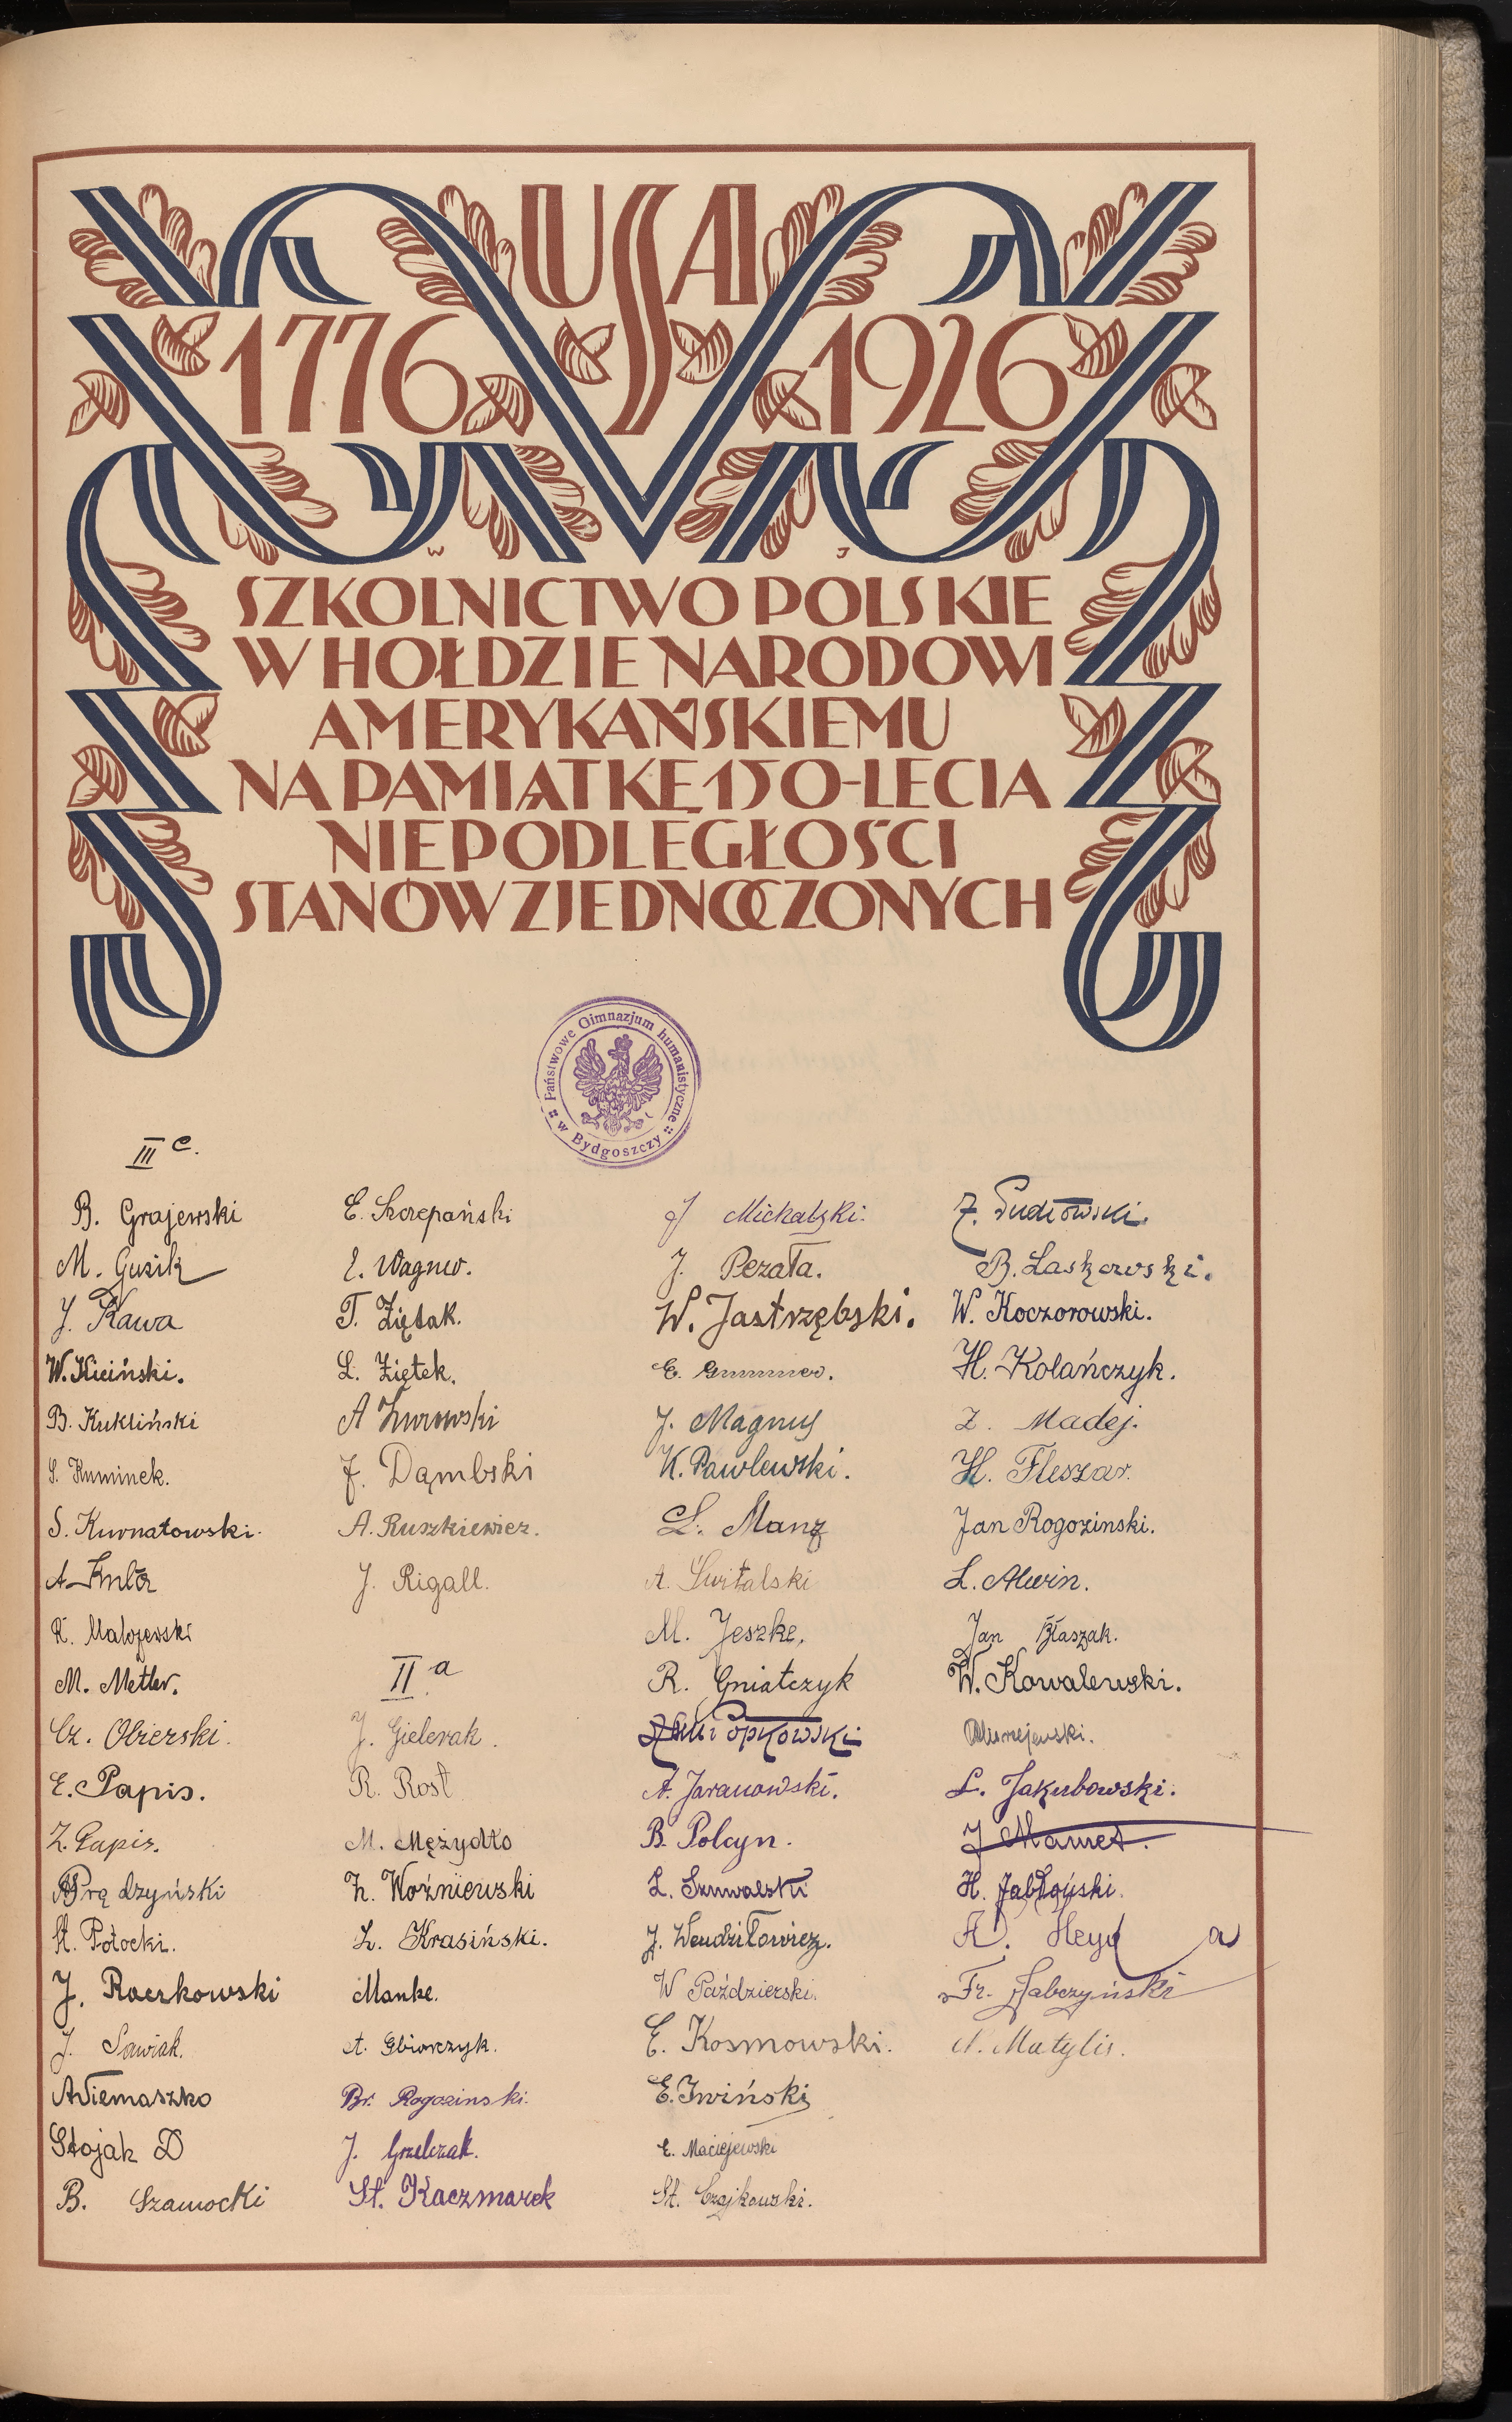 USA
1776 1926
W J
SZKOLNICTWO POLSKIE
W HOŁDZIE NARODOWI
AMERYKAŃSKIEMU
NA PAMIĄTKĘ 150-LECIA
NIEPODLEGŁOŚCI
STANÓW ZJEDNOCZONYCH
Państwowe Gimnazjum humanistyczne
w Bydgoszczy
III c.
B. Grajewski
M. Guzik
J. Kawa
W. Kiciński.
B. Kukliński
S. Kuminek.
S. Kurnatowski.
A.
K. Malojewski
M. Metler.
Cz. Obierski.
E. Papis.
Z. Papis.
Prądzyński
St. Potocki.
J. Raczkowski
J. Sawiak.
A Siemaszko
Stojak D
B. Szamocki
E. Szczepański
E. Wagner.
T. Ziętak.
L. Ziętek.
A Żurowski
J. Dąmbski
A. Ruszkiewicz.
J. Rigall.
II a
J. Gielerak.
R. Rost
M. Mężydło
Z. Woźniewski
L. Krasiński.
Manke.
A. Gbiorczyk.
Br. Rogozinski.
J. Grzelczak.
St. Kaczmarek
J Michalski.
J. Pezała.
W. Jastrzębski.
E. Gummer.
J. Magnus
K. Pawlewski.
L. Manz
A. Świtalski
M. Jeszke.
R. Gniatczyk
Popkowski
A. Jaranowski.
B. Polcyn.
L. Szuwalski
J. Wendziłowicz.
W Paździerski.
E. Kosmowski.
E. Iwiński
E. Maciejewski
St. Czajkowski.
B. Laskowski.
W. Koczorowski.
H. Kolańczyk.
Z. Madej.
H. Fleszar.
Jan Rogozinski.
L. Alwin.
Jan Błaszak.
W. Kowalewski.
L. Jakubowski.
J Mamet.
H. Jabłoński.
A. Heyda
Fr. Jabczyński
A. Matylis.